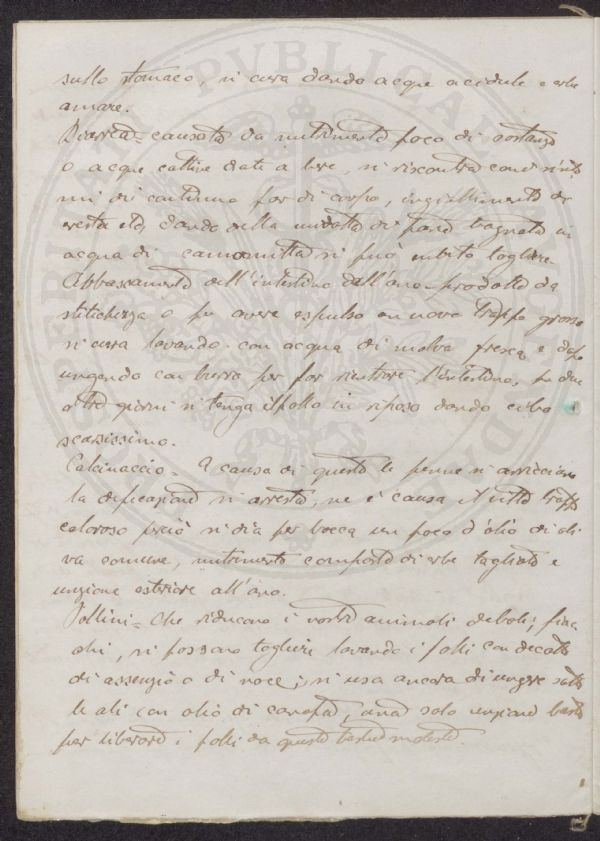 sullo stomaco, si cura dando acque acidule e erbe
amare.
Diarrea = causata da nutrimento poco di sostanza
o acque cattive dati a bere, si riscontra con i sinto
mi di continuo for di corpo, ingiallimento de
cresta etc, dando della midolla di pane bagnata in
acqua di camomilla si può subito togliere
Abbassamento dell'intestino dall'ano = prodotto da
stitichezza o per avere espulso un uovo troppo grosso
si cura lavando con acqua di malva fresca e dopo
ungendo con burro per far rientrare l'intestino, per due
o tre giorni si tenga il pollo in riposo dando cibo
scarsissimo.
Calcinaccio = A causa di questo le penne si arricciano
la deficazione si arresta, ne è causa il vitto troppo
caloroso perciò si dia per bocca un poco d'olio di oli
va comune, nutrimento composto di erbe tagliate e
unzione esteriore all'ano.
Pollini = Che riducano i nostri animali deboli, fiac
chi, si possano togliere lavando i polli con decotto
di assenzio o di noce; si usa ancora di ungere sotto
le ali con olio di canapa, una solo unzione basta
per liberare i polli da queste bestie moleste.
PVBLICAE